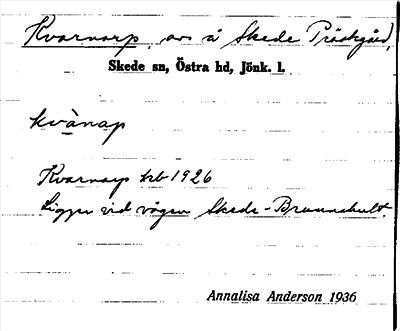 Kvarnarp, avs å Skede Prästgård,
Skede sn, Östra hd, Jönk. l.
kvànap
Kvarnarp krb 1926
Ligger vid vägen Skede-Brunnshult.
Annalisa Anderson 1936